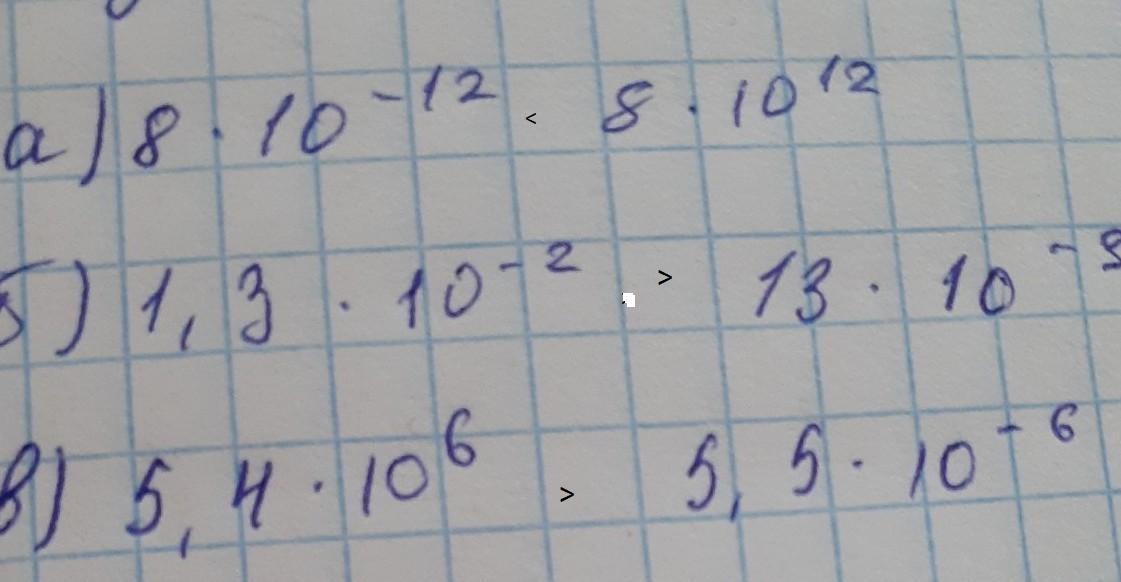 а) 8 · 10⁻¹² < 8 · 10¹²
б) 1,3 · 10⁻² > 13 · 10
в) 5,4 · 10⁶ > 5,5 · 10⁻⁶